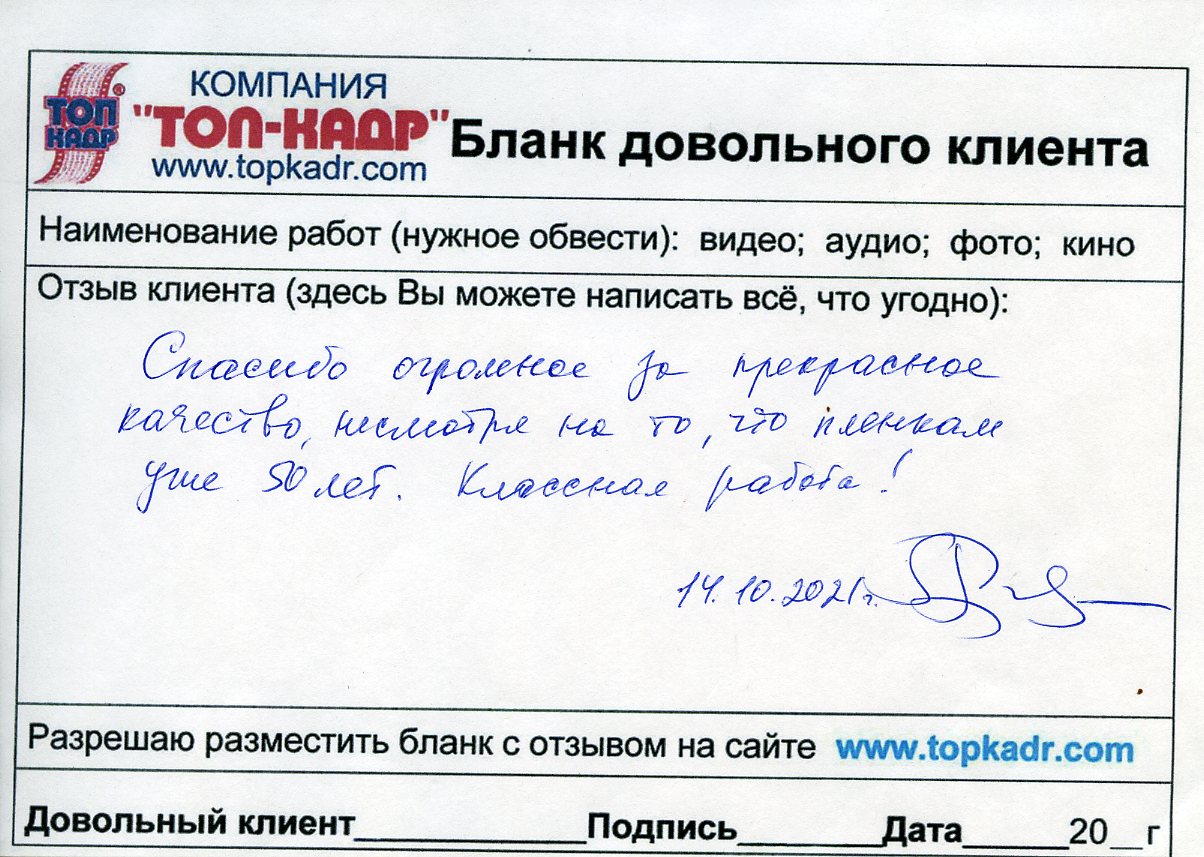 ТОП КАДР ®
КОМПАНИЯ
"ТОП-КАДР"
www.topkadr.com
Бланк довольного клиента
Наименование работ (нужное обвести): видео; аудио; фото; кино
Отзыв клиента (здесь Вы можете написать всё, что угодно):
Спасибо огромное за прекрасное
качество, несмотря на то, что пленкам
уже 50 лет. Классная работа!
14.10.2021г.
Разрешаю разместить бланк с отзывом на сайте www.topkadr.com
Довольный клиент____________Подпись________Дата______20__г